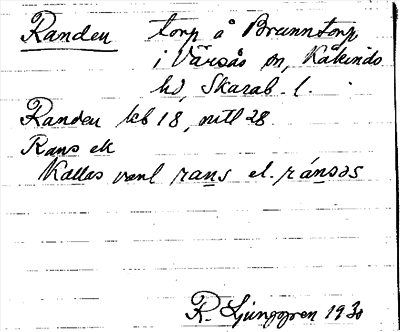 Randen torp å Brunntorp
i Värsås sn, Kåkinds
hd, Skarab. l.
Randen kb 18, mtl 28
Rans ek
Kallas vanl rans el. ránsəs
R. Ljunggren 1930